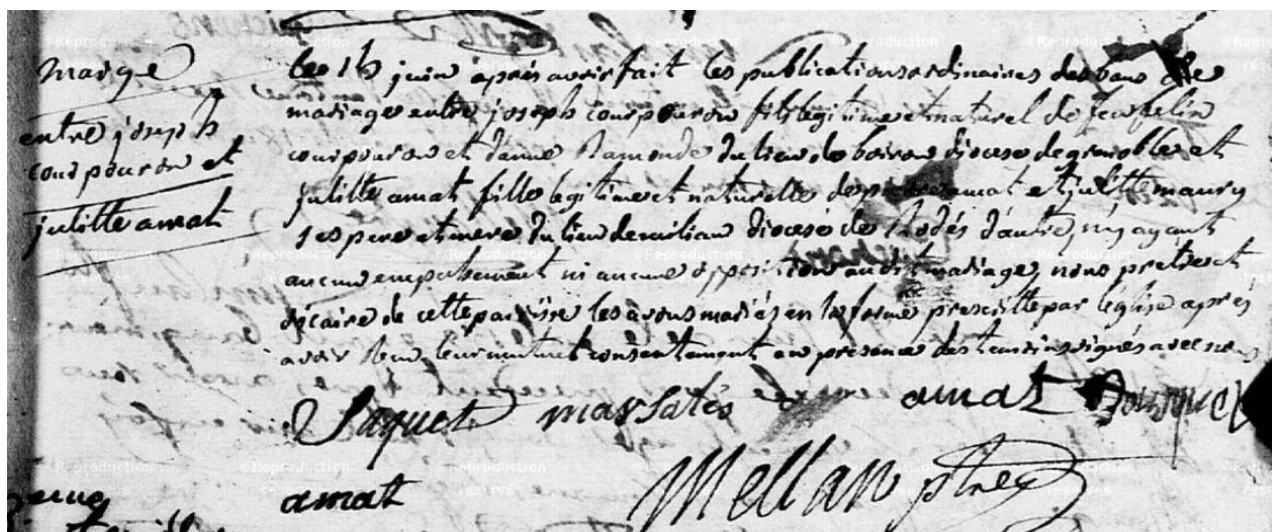 mariage
entre joseph
courpouron et
julitte amat
les 15 juin après avoir fait les publications ordinaires des bans de
mariage entre joseph courpouron fils legitime et naturel de feu felin
courpouron et d'anne Ramonde du lieu de boiron diocese de grenoble et
julitte amat fille legitime et naturelle de pierre amat et julitte maury
ses pere et mere du lieu de milian diocese de Rodés d'autre, n'y ayant
aucun empechement ni aucune opposition audit mariage, nous pretre et
vicaire de cette paroisse les avons mariés en la forme prescritte par l'église après
avoir reçu leur mutuel consentement en presence des temoins signés avec nous
Paquet marsatés amat Bousquet
amat Mellan ptre